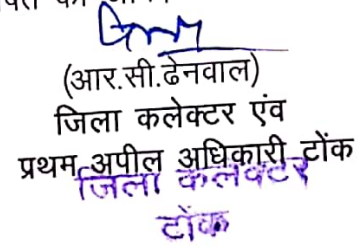 (आर.सी.ढेनवाल)
जिला कलेक्टर एंव
प्रथम अपील अधिकारी टोंक
जिला कलक्टर
टोंक